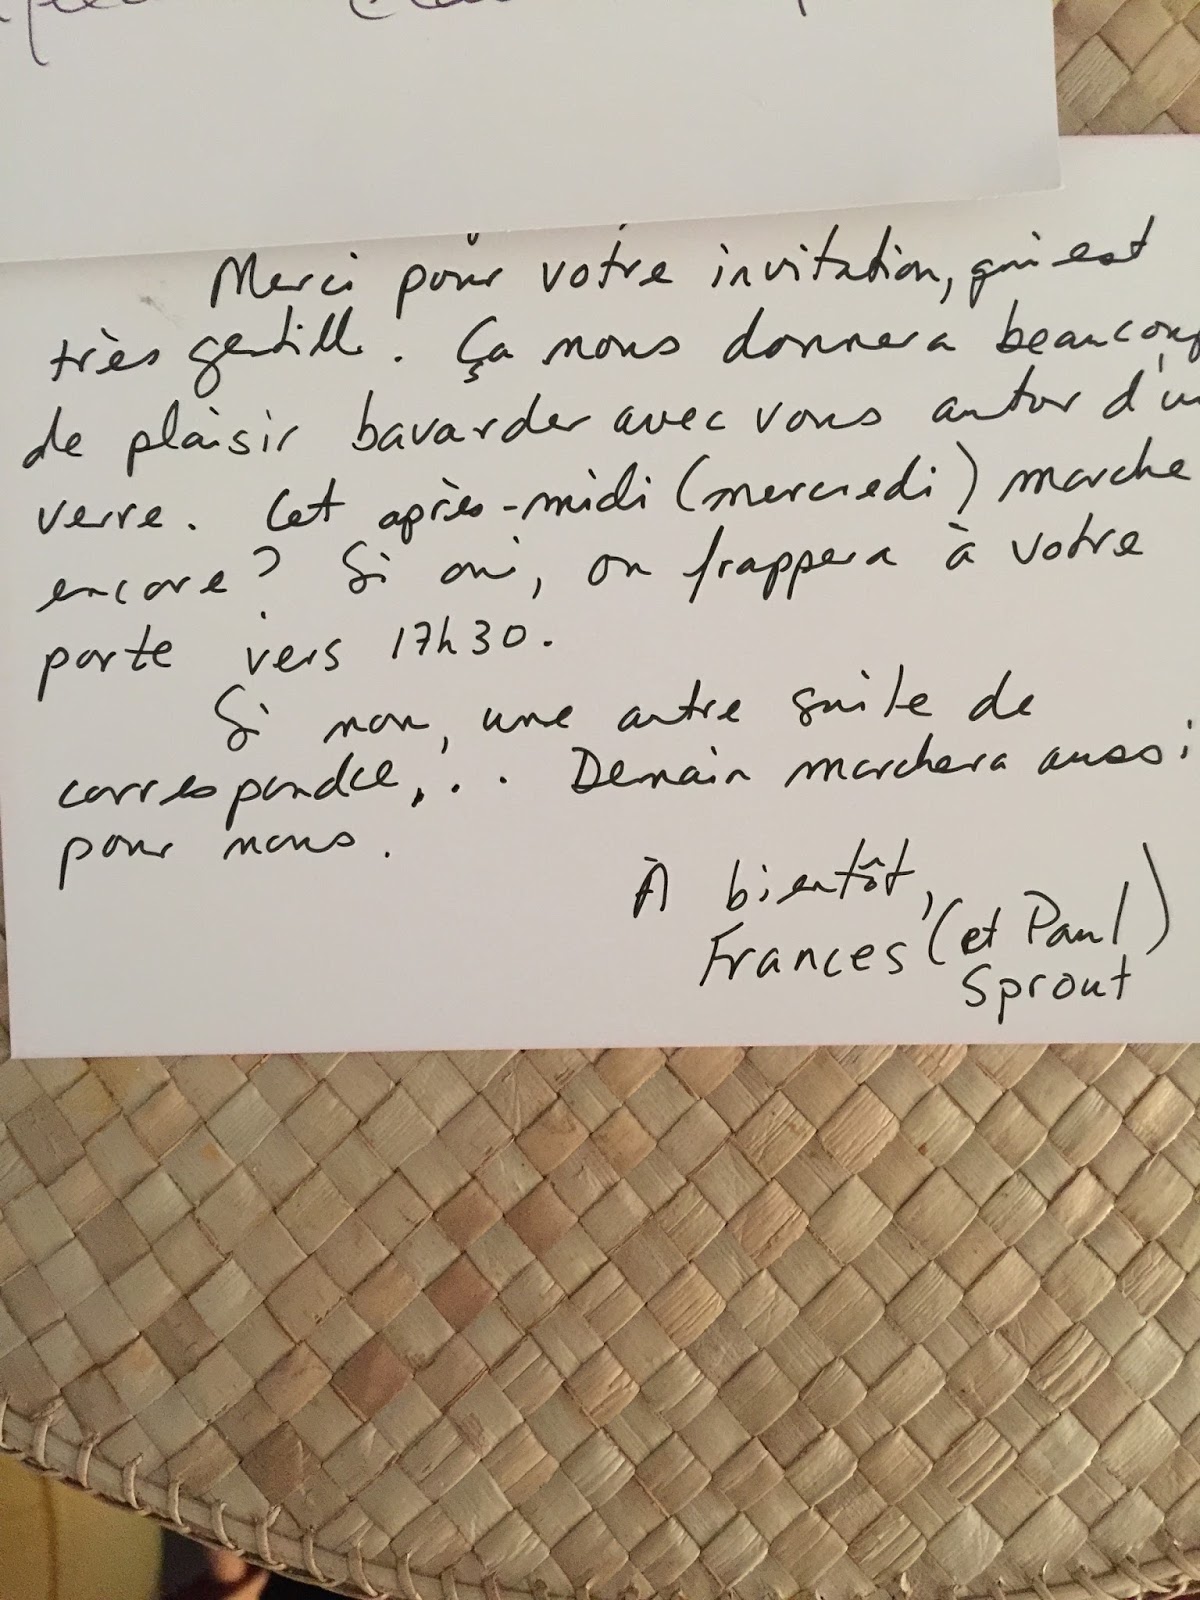 Merci pour votre invitation, qui est
très gentille. Ça nous donnera beaucoup
de plaisir bavarder avec vous autor d'un
verre. Cet après-midi (mercredi) marche
encore? Si oui, on frappera à votre
porte vers 17h30.
Si non, une autre suite de
correspondce,... Demain marchera aussi
pour nous.
À bientôt,
Frances (et Paul)
Sprout